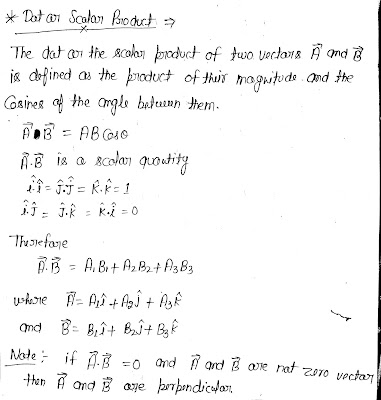 * Dot or Scalar Product ⇒
The dot or the scalar product of two vectors A⃗ and B⃗
is defined as the product of their magnitude and the
Cosines of the angle between them.
A⃗•B⃗ = AB Cosθ
A⃗.B⃗ is a scalar quantity
î.î = ĵ.ĵ = k̂.k̂ = 1
î.ĵ = ĵ.k̂ = k̂.î = 0
Therefore
A⃗.B⃗ = A₁B₁ + A₂B₂ + A₃B₃
where A⃗ = A₁î + A₂ĵ + A₃k̂
and B⃗ = B₁î + B₂ĵ + B₃k̂
Note :- if A⃗.B⃗ = 0 and A⃗ and B⃗ are not zero vector
then A⃗ and B⃗ are perpendicular.